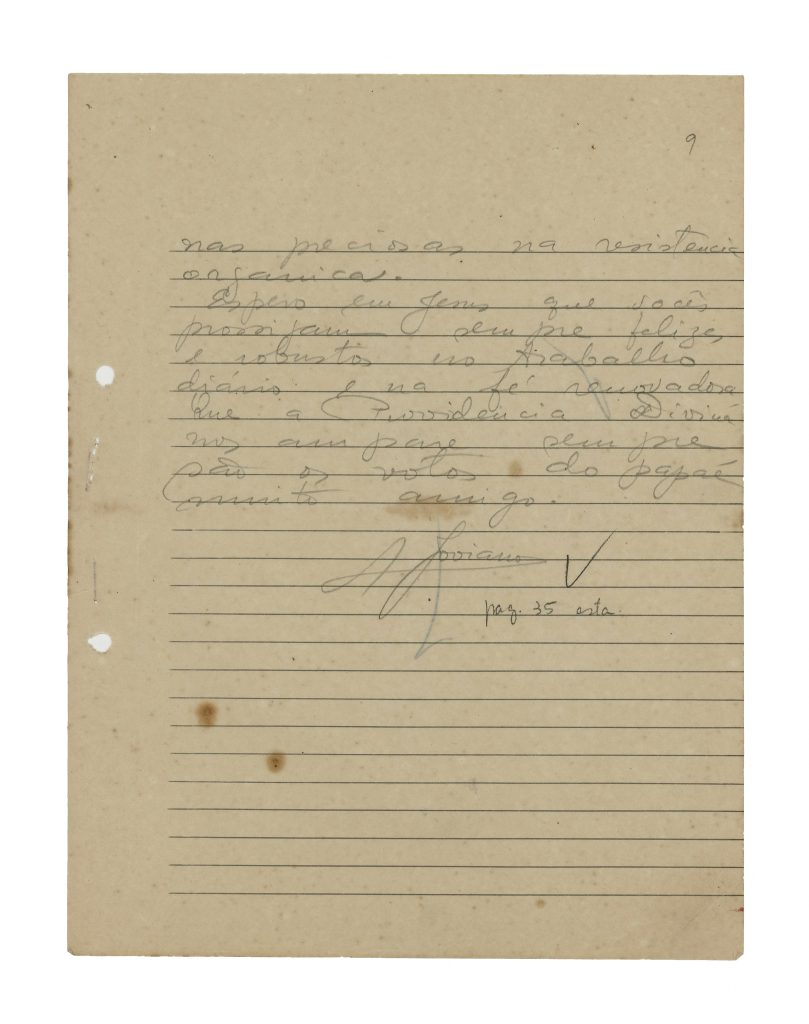 9
nas preciosas na resistencia
organica.
Espero em Jesus que vocês
prossijam sempre felizes
e robustos no trabalho
diário e na fé renovadora
Que a Providencia Divina
nos ampare sempre
são os votos do papaé
muito amigo.
A Joviano
pag. 35 esta.